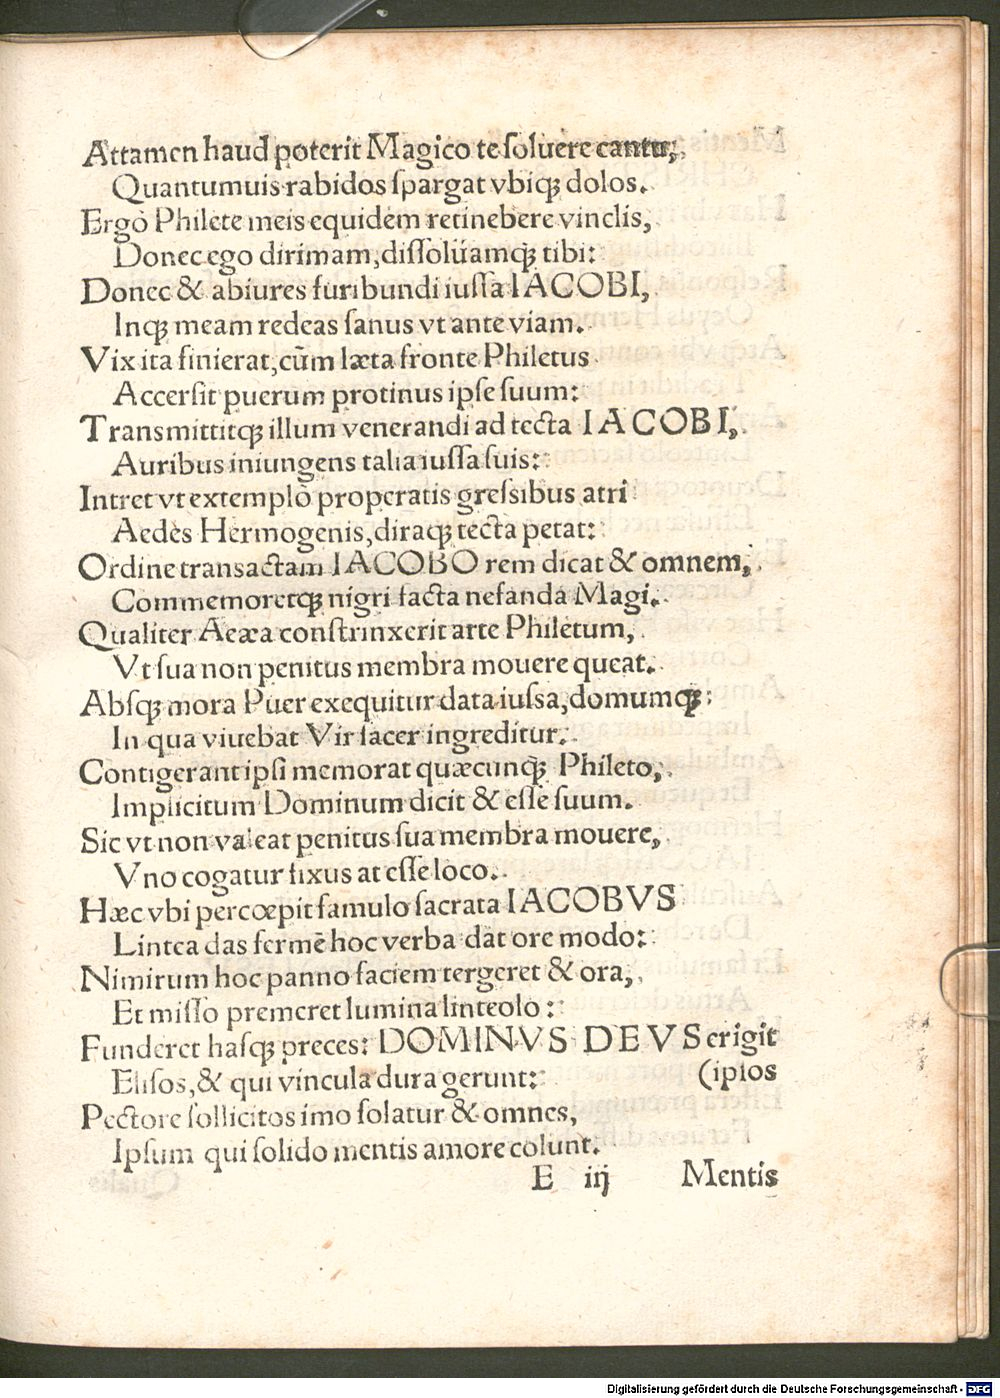 Attamen haud poterit Magico te ſoluere cantu,
Quantumuis rabidos ſpargat vbiqꝫ dolos.
Ergò Philete meis equidem retinebere vinclis,
Donec ego dirimam, diſſoluamqꝫ tibi:
Donec & abiures furibundi iuſſa IACOBI,
Inqꝫ meam redeas ſanus vt ante viam.
Vix ita finierat, cũm læta fronte Philetus
Accerſit puerum protinus ipſe ſuum:
Transmittitqꝫ illum venerandi ad tecta IACOBI,
Auribus iniungens talia iuſſa ſuis:
Intret vt extemplò properatis greſsibus atri
Aedès Hermogenis, diraqꝫ tecta petat:
Ordine transactam IACOBO rem dicat & omnem,
Commemoretqꝫ nigri facta nefanda Magi.
Qualiter Aeæa conſtrinxerit arte Philetum,
Vt ſua non penitus membra mouere queat.
Abſqꝫ mora Puer exequitur data iuſsa, domumqꝫ:
In qua viuebat Vir ſacer ingreditur.
Contigerant ipſi memorat quæcunqꝫ Phileto,
Implicitum Dominum dicit & eſſe ſuum.
Sic vt non valeat penitus ſua membra mouere,
Vno cogatur fixus at eſſe loco.
Hæc vbi percœpit famulo ſacrata IACOBVS
Lintea das fermè hoc verba dat ore modo:
Nimirum hoc panno faciem tergeret & ora,
Et miſſo premeret lumina linteolo:
Funderet haſqꝫ preces: DOMINVS DEVS erigit
Eliſos, & qui vincula dura gerunt: (ipſos
Pectore ſollicitos imo ſolatur & omnes,
Ipſum qui ſolido mentis amore colunt.
E iij Mentis
Digitalisierung gefördert durch die Deutsche Forschungsgemeinschaft - DFG